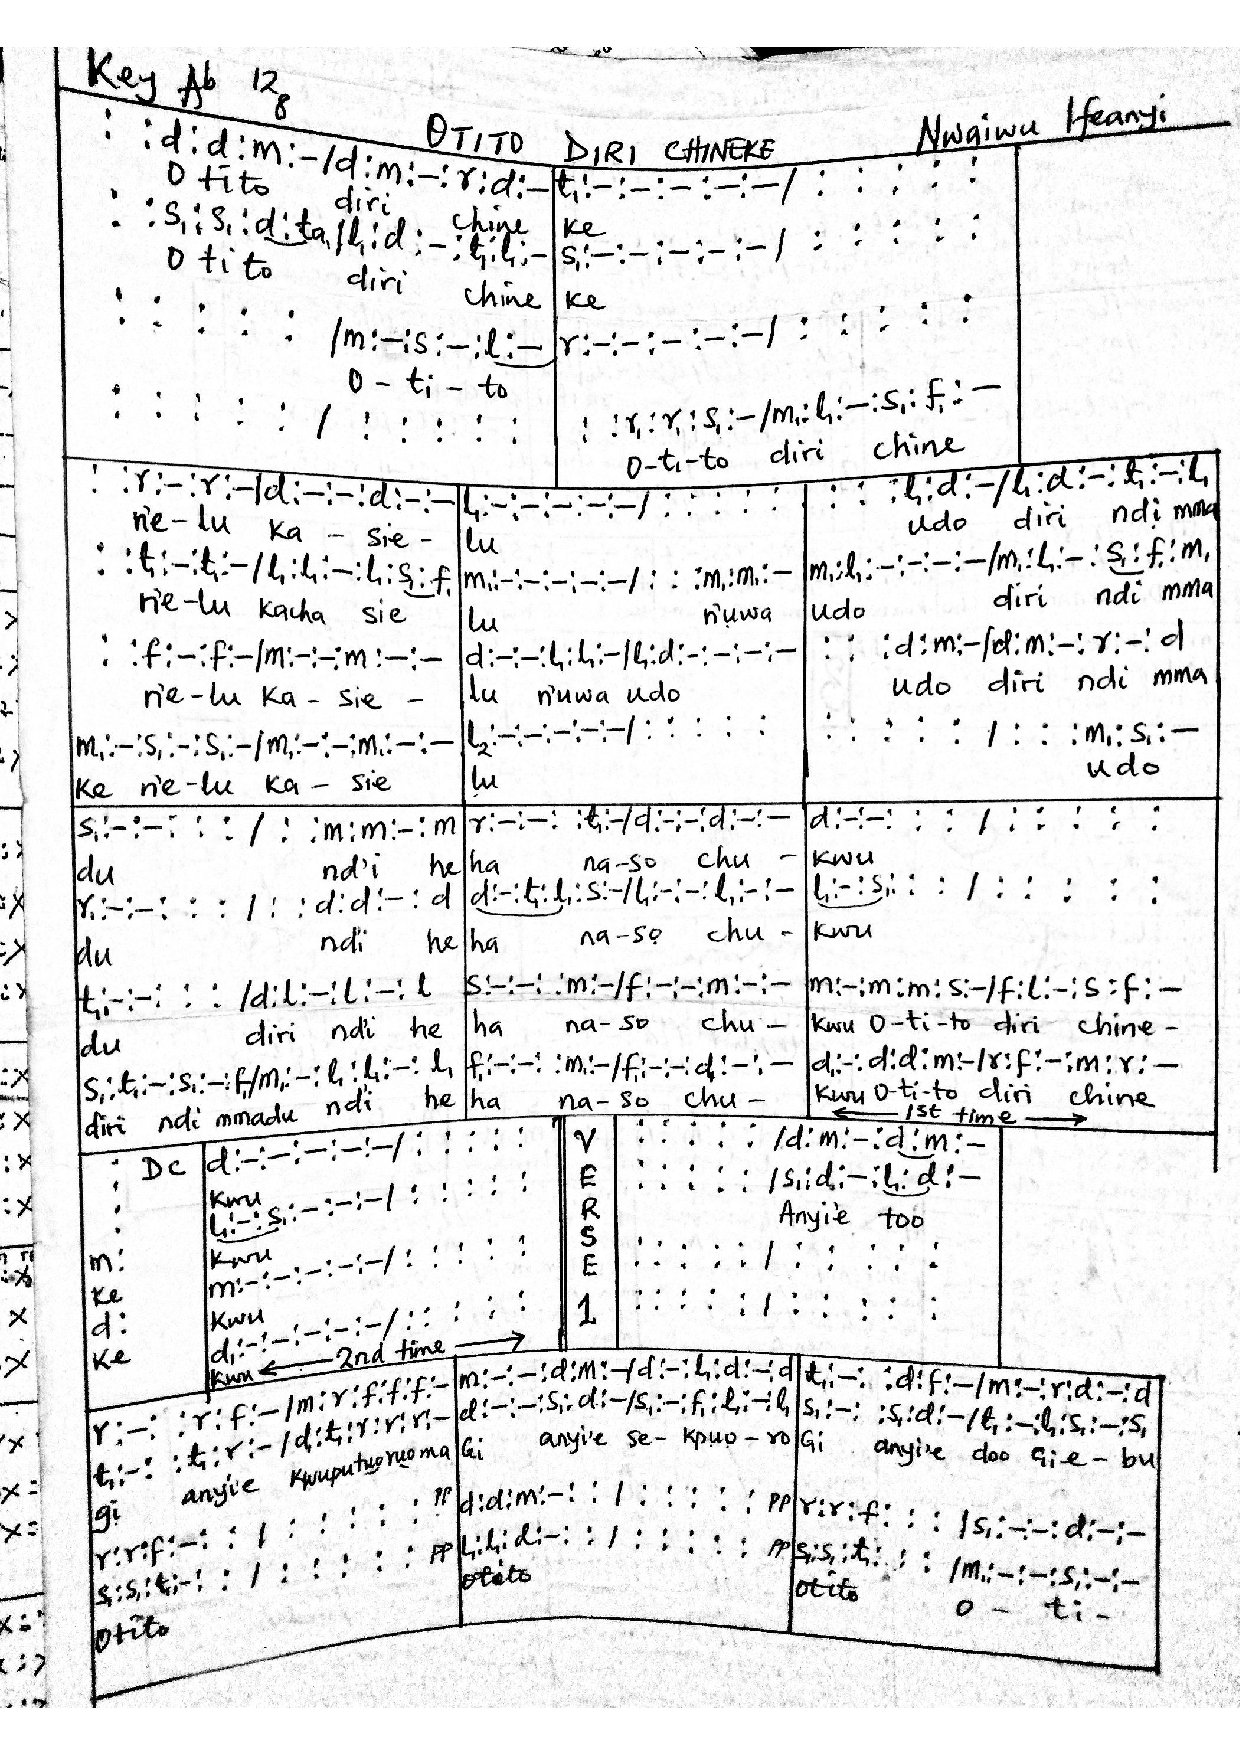 Key Ab 12/8
OTITO DIRI CHINEKE
Nwaiwu Ifeanyi
: :d:d:m:-/d:m:-:r:d:- t₁:-:-:-:-:-/ : : : : :
O tito diri chine ke
: :s₁:s₁:d:ta₁/l₁:d:-:t₁:l₁:- s₁:-:-:-:-:-/ : : : : :
O tito diri chine ke
: : : : : /m:-:s:-:l:- r:-:-:-:-:-/ : : : : :
O - ti - to
: : : : : / : : : : : : :r₁:r₁:s₁:-/m₁:l₁:-:s₁:f₁:-
O-ti-to diri chine
: :r:-:r:-/d:-:-:d:-:- l₁:-:-:-:-:-/ : : : : : : : :l₁:d:-/l₁:d:-:t₁:-:l₁
n'e-lu ka - sie - lu udo diri ndi mma
: :t₁:-:t₁:-/l₁:l₁:-:l₁:s₁:f₁ m₁:-:-:-:-:-/ : : :m₁:m₁:- m₁:l₁:-:-:-:-/m₁:l₁:-:s₁:f₁:m₁
n'e-lu kacha sie lu n'uwa udo diri ndi mma
: :f:-:f:-/m:-:-:m:-:- d:-:-:l₁:l₁:-/l₁:d:-:-:-:- : : :d:m:-/d:m:-:r:-:d
n'e-lu ka - sie - lu n'uwa udo udo diri ndi mma
m₁:-:s₁:-:s₁:-/m₁:-:-:m₁:-:- l₂:-:-:-:-:-/ : : : : : : : : : : / : : :m₁:s₁:-
ke n'e-lu ka - sie lu udo
s₁:-:-: : : / : :m:m:-:m r:-:-: :t₁:-/d:-:-:d:-:- d:-:-: : : / : : : : :
du ndi he ha na-so chu - kwu
r₁:-:-: : : / : :d:d:-:d d:-:t₁:l₁:s₁:-/l₁:-:-:l₁:-:- l₁:-:s₁: : : / : : : : :
du ndi he ha na-so chu - kwu
t₁:-:-: : : /d:l:-:l:-:l s:-:-: :m:-/f:-:-:m:-:- m:-:m:m:s:-/f:l:-:s:f:-
du diri ndi he ha na-so chu - kwu O-ti-to diri chine -
s₁:t₁:-:s₁:-:f₁/m₁:-:l₁:l₁:-:l₁ f₁:-:-: :m₁:-/f₁:-:-:d₁:-:- d₁:-:d:d:m:-/r:f:-:m:r:-
diri ndi mmadu ndi he ha na-so chu - kwu O-ti-to diri chine
1st time
: DC d:-:-:-:-:-/ : : : : : VERSE 1 : : : : : /d:m:-:d:m:-
: kwu : : : : : /s₁:d:-:l₁:d:-
: l₁:-:s₁:-:-:-/ : : : : : Anyi'e too
m: kwu : : : : : / : : : : :
ke m:-:-:-:-:-/ : : : : : : : : : : / : : : : :
d: kwu
ke d₁:-:-:-:-:-/ : : : : :
kwu 2nd time
r:-: :r:f:-/m:r:f:f:f:- m:-:-:d:m:-/d:-:l₁:d:-:d t₁:-: :d:f:-/m:-:r:d:-:d
t₁:-: :t₁:r:-/d:t₁:r:r:r:- d:-:-:s₁:d:-/s₁:-:f₁:l₁:-:l₁ s₁:-: :s₁:d:-/t₁:-:l₁:s₁:-:s₁
gi anyi'e kwuputuoruoma Gi anyi'e se-kpuo-ro Gi anyi'e doo Gi-e-bu
r:r:f:-: : / : : : : : PP d:d:m:-: : / : : : : : PP r:r:f: : : /s₁:-:-:d:-:-
s₁:s₁:t₁:-: : / : : : : : PP l₁:l₁:d:-: : / : : : : : PP s₁:s₁:t₁: : : /m₁:-:-:s₁:-:-
otito otito otito o - ti -